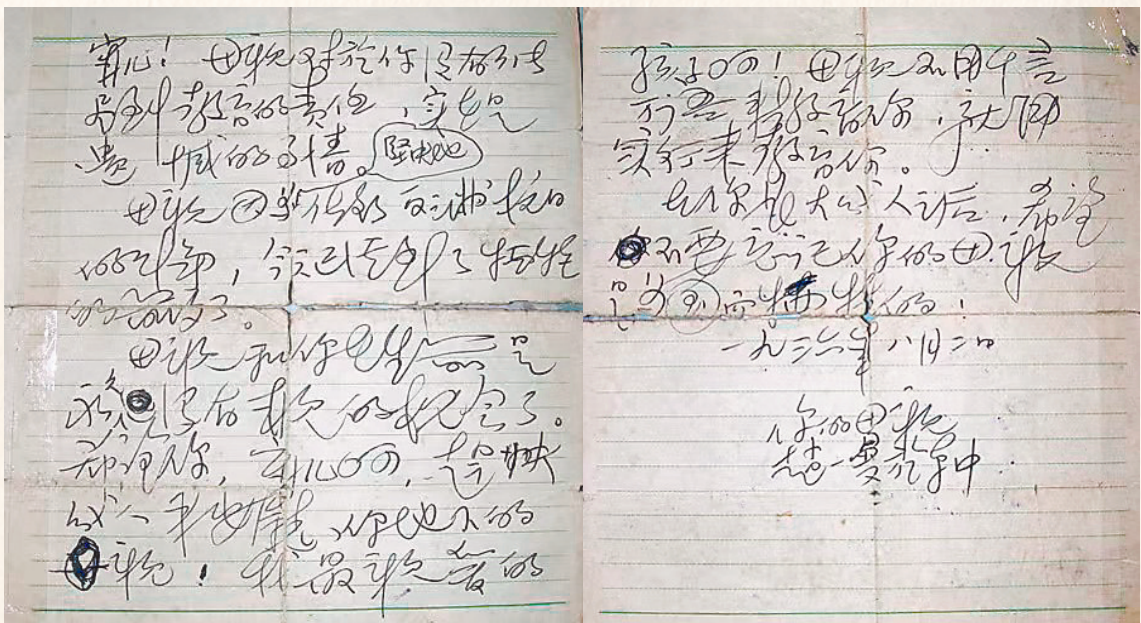 宁儿！母亲对于你没有能
尽到教育的责任，实在是
遗憾的事情。坚决地
母亲因为做了反满抗日
的斗争，今天已经到了牺牲
的前夕了。
母亲和你在生前是
永久没有再见的机会了。
希望你，宁儿啊，赶快
成人来安慰你地下的
母亲！我最亲爱的
孩子啊！母亲不用千言
万语来教育你，就用
实行来教育你。
在你长大成人之后，希望
不要忘记你的母亲
是为国而牺牲的！
一九三六年八月二日
你的母亲
赵一曼于车中